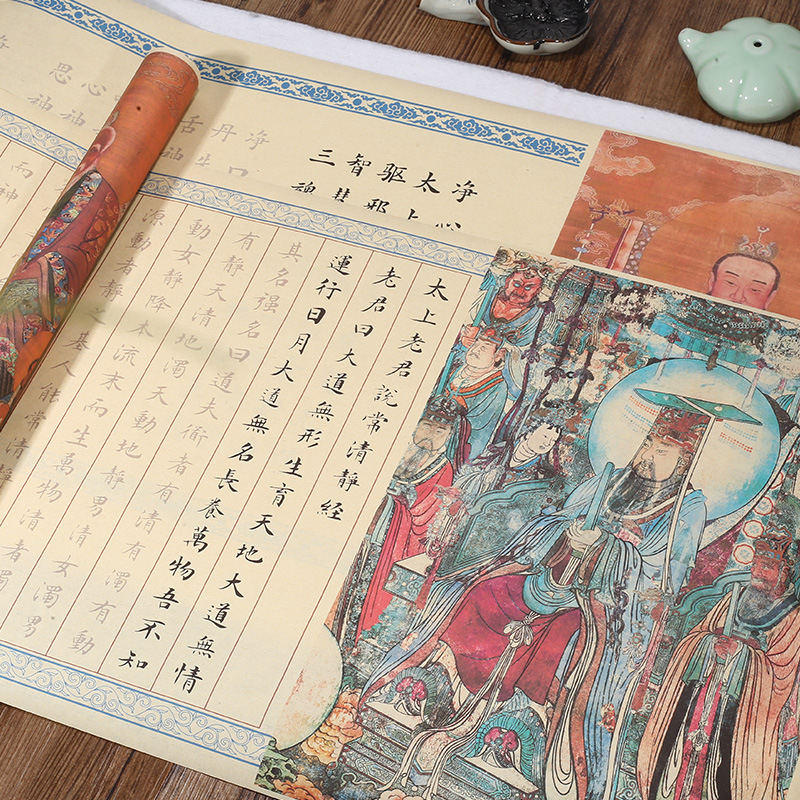 太上老君說常清靜經
老君曰大道無形生育天地大道無情
運行日月大道無名長養萬物吾不知
其名强名曰道大衜者有清有濁有動
有靜天清地濁天動地靜男清女濁男
動女靜降本流末而生萬物清者濁
源動者靜之基人能常清
而神
净心
太上
驱邪
智慧
三魂
净口
丹生
舌神
心神
思神